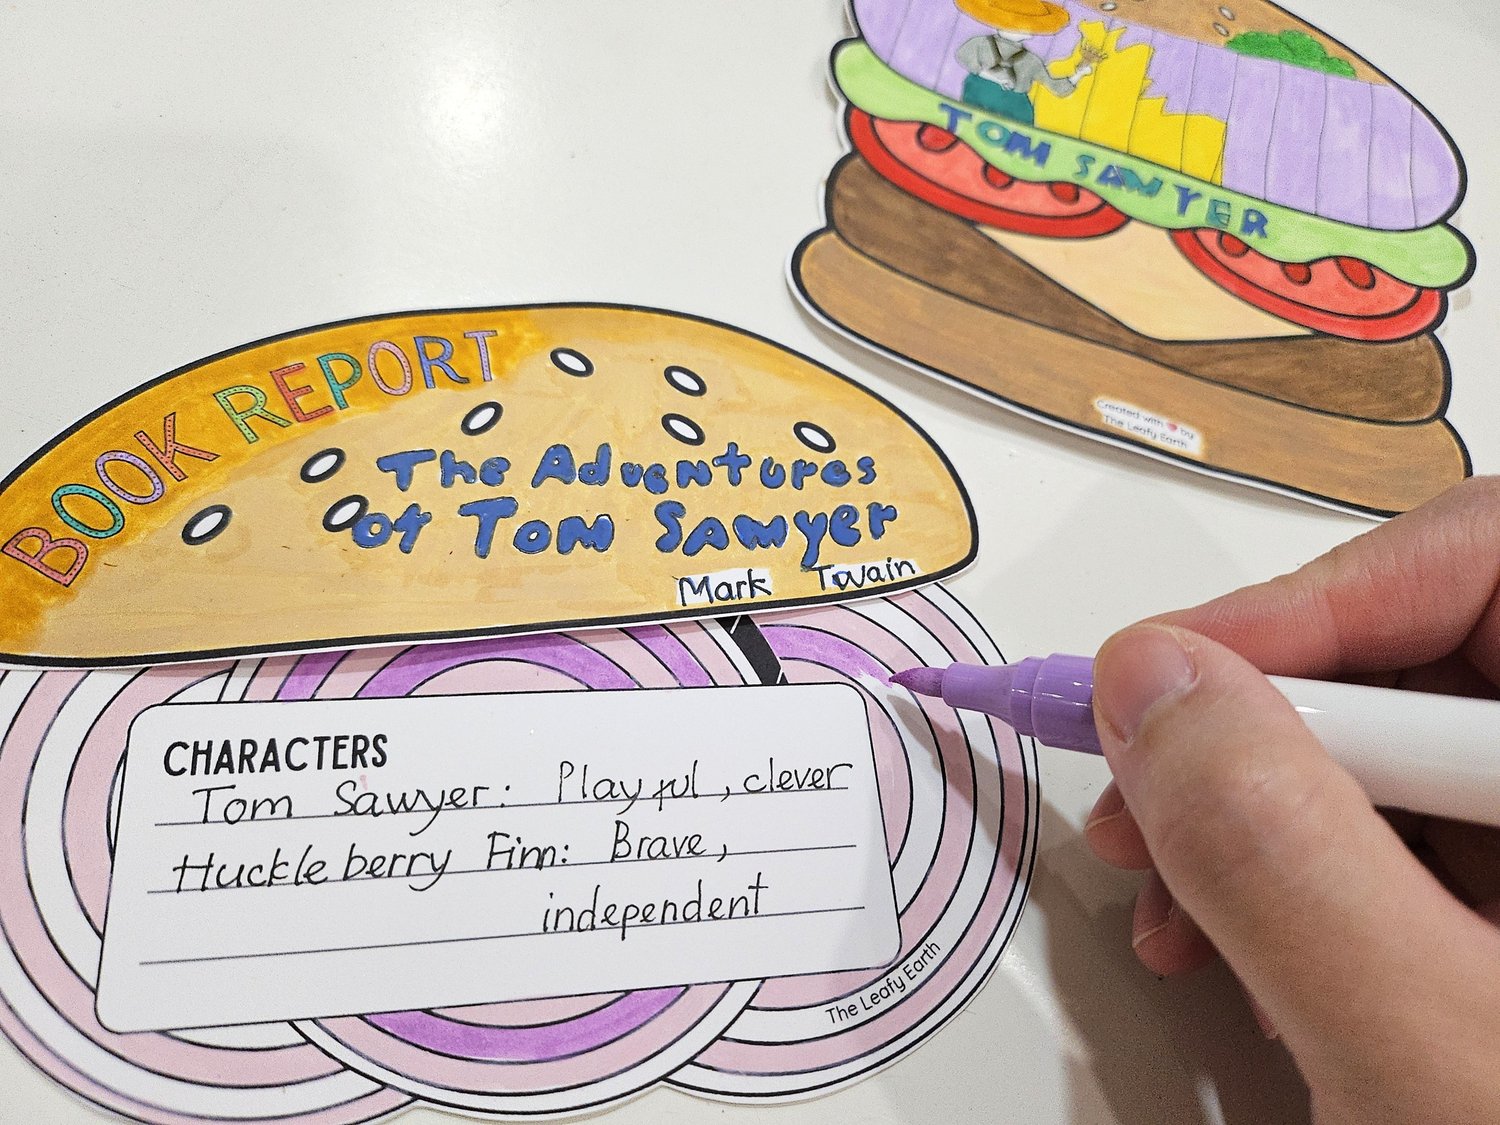 BOOK REPORT
The Adventures
of Tom Sawyer
Mark Twain
CHARACTERS
Tom Sawyer: Playful, clever
Huckleberry Finn: Brave,
independent
The Leafy Earth
TOM SAWYER
Created with ❤ by
The Leafy Earth